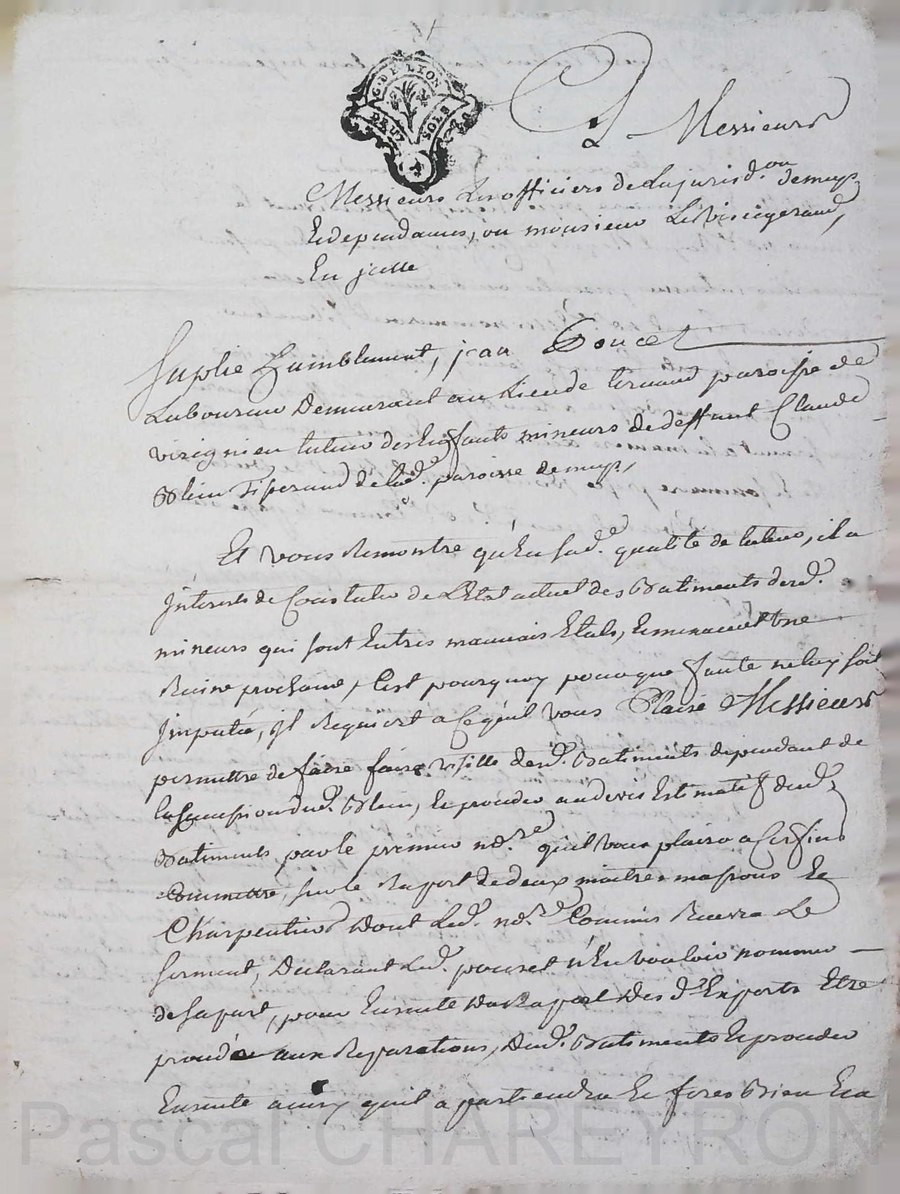 G. DE LYON
DEUX SOLS
A Messieurs
Messieurs Les officiers de La jurisd.on de
Et dependances, ou monsieur Le
En
Suplie humblement, jean Poncet
Laboureur Demeurant au Lieu de paroisse de
en tuteur des Enfants mineurs de deffunt Claude
Blein Tisserand de lad. paroisse de
Et vous Remontre qu'En sad.e qualité de tuteur, il a
Interest de Constater de L'Etat actuel des Batiments desd.
mineurs qui sont En tres mauvais Etats, Et menacent Une
Ruine prochaine, C'est pourquoy pour que faute ne luy soit
Imputée, il Requiert a Ce qu'il vous Plaise Messieurs
permettre de faire faire visitte desd. Batiments dependant de
la Succession dud. Blein, Et proceder au devis Estimatif desd.
Batiments par le premier no.re qu'il Vous plaira a Ces fins
Commettre, sur le Raport de deux maitres massons Et
Charpentiers Dont Led. no.re Commis Recevra Le
serment, Declarant Led. poncet n'En vouloir nommer
de sa part, pour Ensuite du Raport Des d. Experts Etre
procedé aux Reparations, Desd. Batiments Et proceder
Ensuite ainsy qu'il apartiendra Et feres Bien
Pascal CHAREYRON